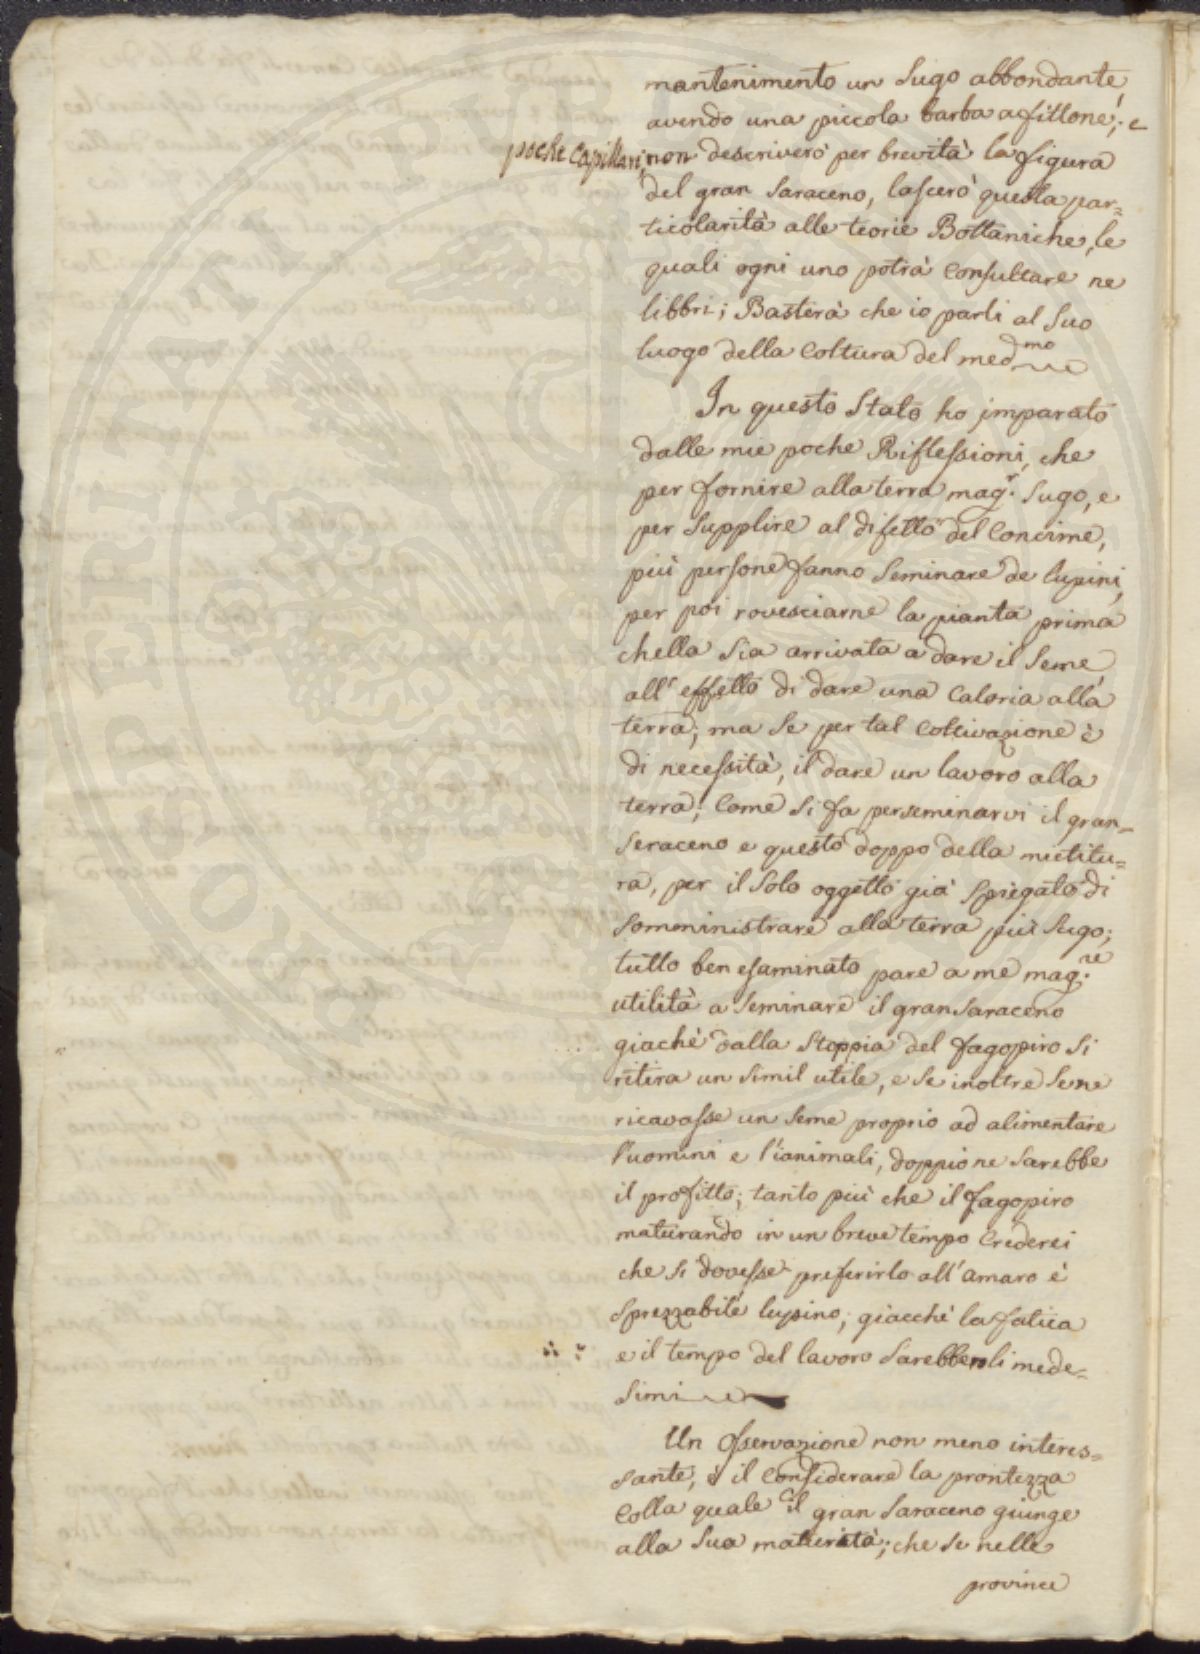 mantenimento un Sugo abbondante,
avendo una piccola barba a fittone; e
poche Capillari, non descriverò per brevità la figura
del gran Saraceno, lascerò questa par=
ticolarità alle teorie Bottaniche, le
quali ogni uno potrà Consultare ne
libbri; Basterà che io parli al Suo
luogo della Coltura del medmo
In questo Stato ho imparato
dalle mie poche Riflessioni, che
per fornire alla terra magr. Sugo, e
per Supplire al difetto del Concime,
più persone fanno Seminare de lupini,
per poi rovesciarne la pianta prima
chella Sia arrivata a dare il Seme
all' effetto di dare una Caloria alla
terra; ma Se per tal Coltivazione è
di necessità, il dare un lavoro alla
terra; Come Si fa per seminarvi il gran=
Seraceno e questo doppo della mietitu=
ra, per il Solo oggetto già Spiegato di
Somministrare alla terra più Sugo;
tutto ben esaminato pare a me mag.re
utilità a Seminare il gran Saraceno
giachè dalla Stoppia del fagopiro Si
ritira un Simil utile, e Se inoltre Se ne
ricavasse un Seme proprio ad alimentare
l'uomini e l'animali, doppio ne Sarebbe
il profitto; tanto più che il fagopiro
maturando in un breve tempo Crederei
che Si dovesse preferirlo all'amaro è
Sprezzabile lupino; giacchè la fatica
e il tempo del lavoro Sarebbero li mede=
Simi
Un Osservazione non meno interes=
sante, è il Considerare la prontezza
Colla quale il gran Saraceno giunge
alla Sua maturità; che Se nelle
province